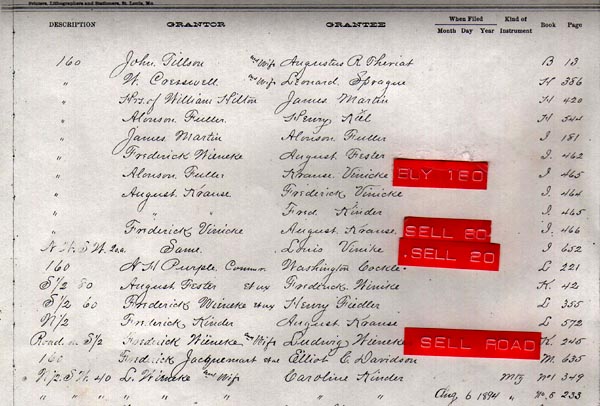 Printers, Lithographers and Stationers, St. Louis, Mo.
DESCRIPTION GRANTOR GRANTEE When Filed Month Day Year Kind of Instrument Book Page
160 John Tillson and Wife Augustus R. Theriat B 13
" W. Cresswell and Wife Leonard Sprague H 386
" Hrs. of William Hilton James Martin H 420
" Alonson Fuller Henry Kiel H 544
" James Martin Alonson Fuller I 181
" Frederick Wieneke August Fester I. 462
" Alonson Fuller Krause Vinicke ELY 160 I. 465
" August Krause Frederick Vinicke I. 464
" " " Fred. Kinder I. 465
" Frederick Vinicke August Krause SELL 80 I. 466
N.W. S.W. Same. Louis Vinike SELL 20 I 652
160 N H Purple Washington Cockle L 221
S 1/2 80 August Fester et ux Frederick Winike K 42
S 1/2 60 Frederick Wieneke et ux Henry Fiedler L 355
N 1/2 Frederick Kinder August Krause L 572
Road in S 1/2 Frederick Wieneke and Wife Ludwig Wieneke SELL ROAD K. 245
160 Fredrick Jacquemart Elliot C. Davidson M. 635
N 1/2 S.W. 40 L. Wineke and Wife Caroline Kinder Mtg No 1 349
Aug 6 1894 " No. 5 233